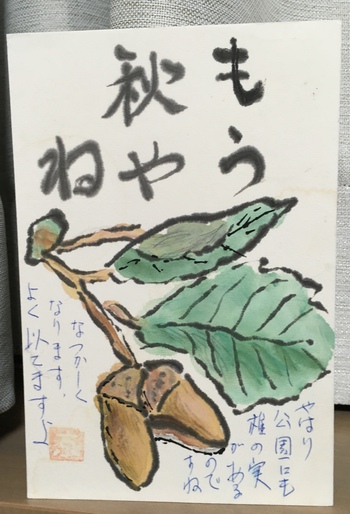 もう
秋や
ね
やはり
公園にも
椎の実
がある
ので
すね
なつかしく
なります。
よく似てますよ